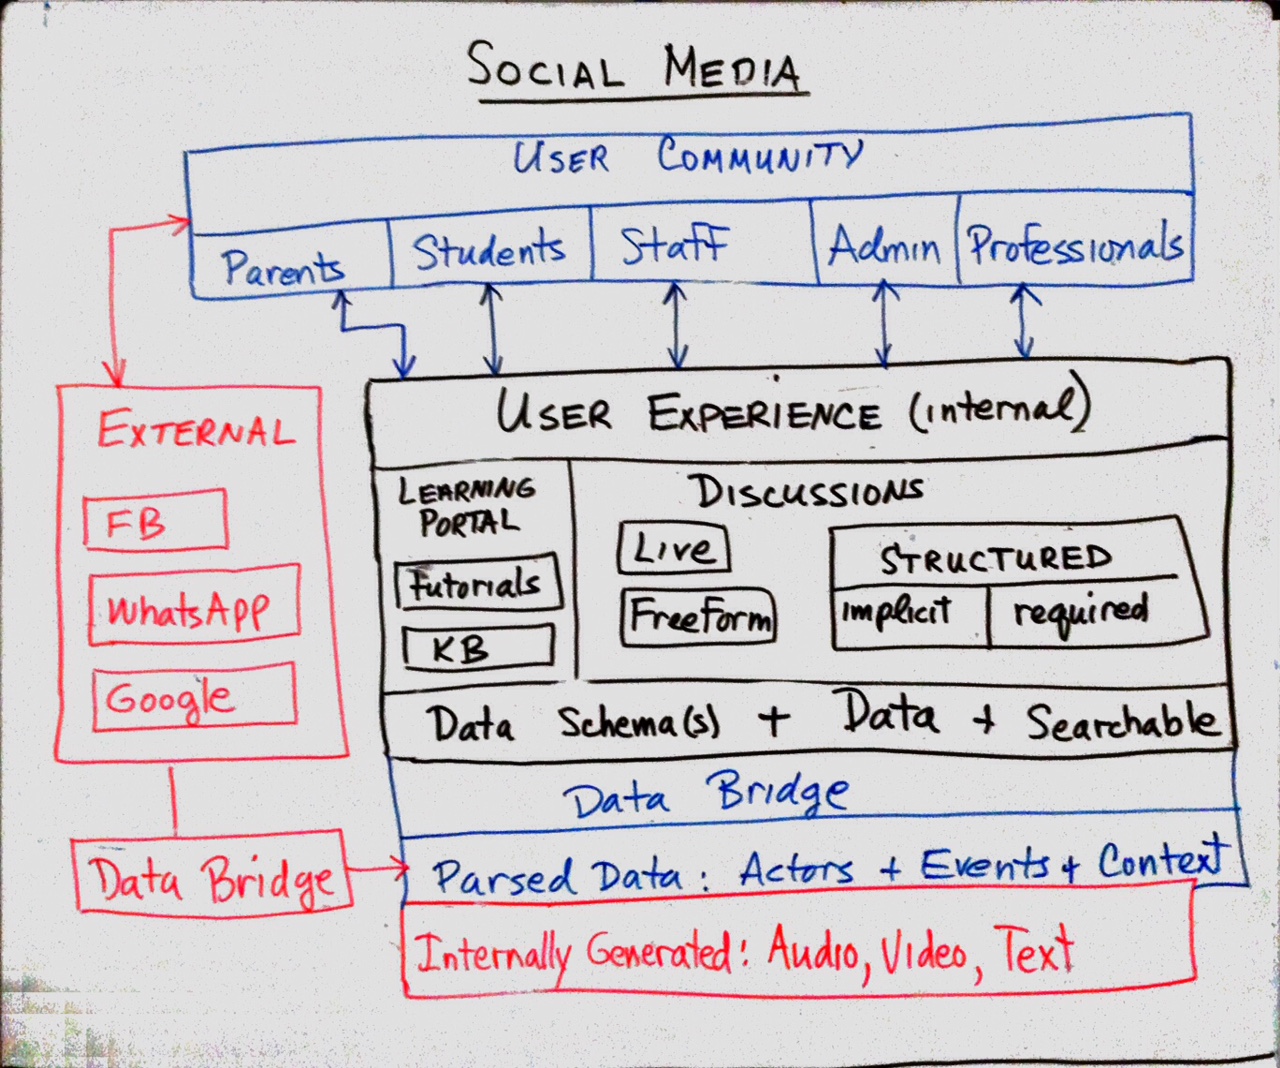 SOCIAL MEDIA
USER COMMUNITY
Parents
Students
Staff
Admin
Professionals
EXTERNAL
FB
WhatsApp
Google
Data Bridge
USER EXPERIENCE (internal)
LEARNING
PORTAL
Tutorials
KB
DISCUSSIONS
Live
Freeform
STRUCTURED
implicit
required
Data Schema(s) + Data + Searchable
Data Bridge
Parsed Data: Actors + Events + Context
Internally Generated: Audio, Video, Text